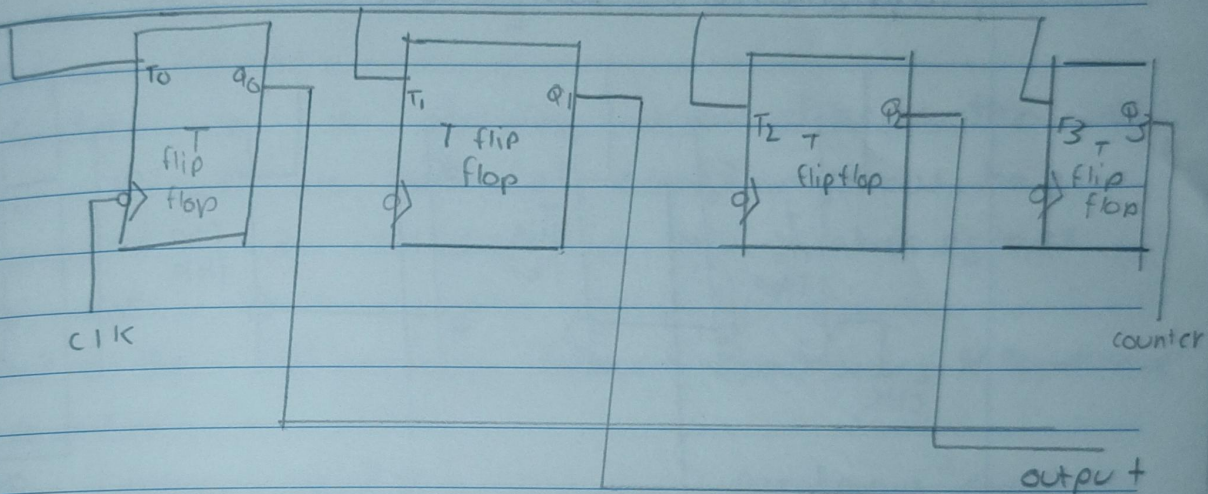 T0 Q0
T
flip
flop
T1 Q1
T flip
flop
T2 Q2
T
flipflop
T3 Q3
T
flip
flop
clk
counter
output